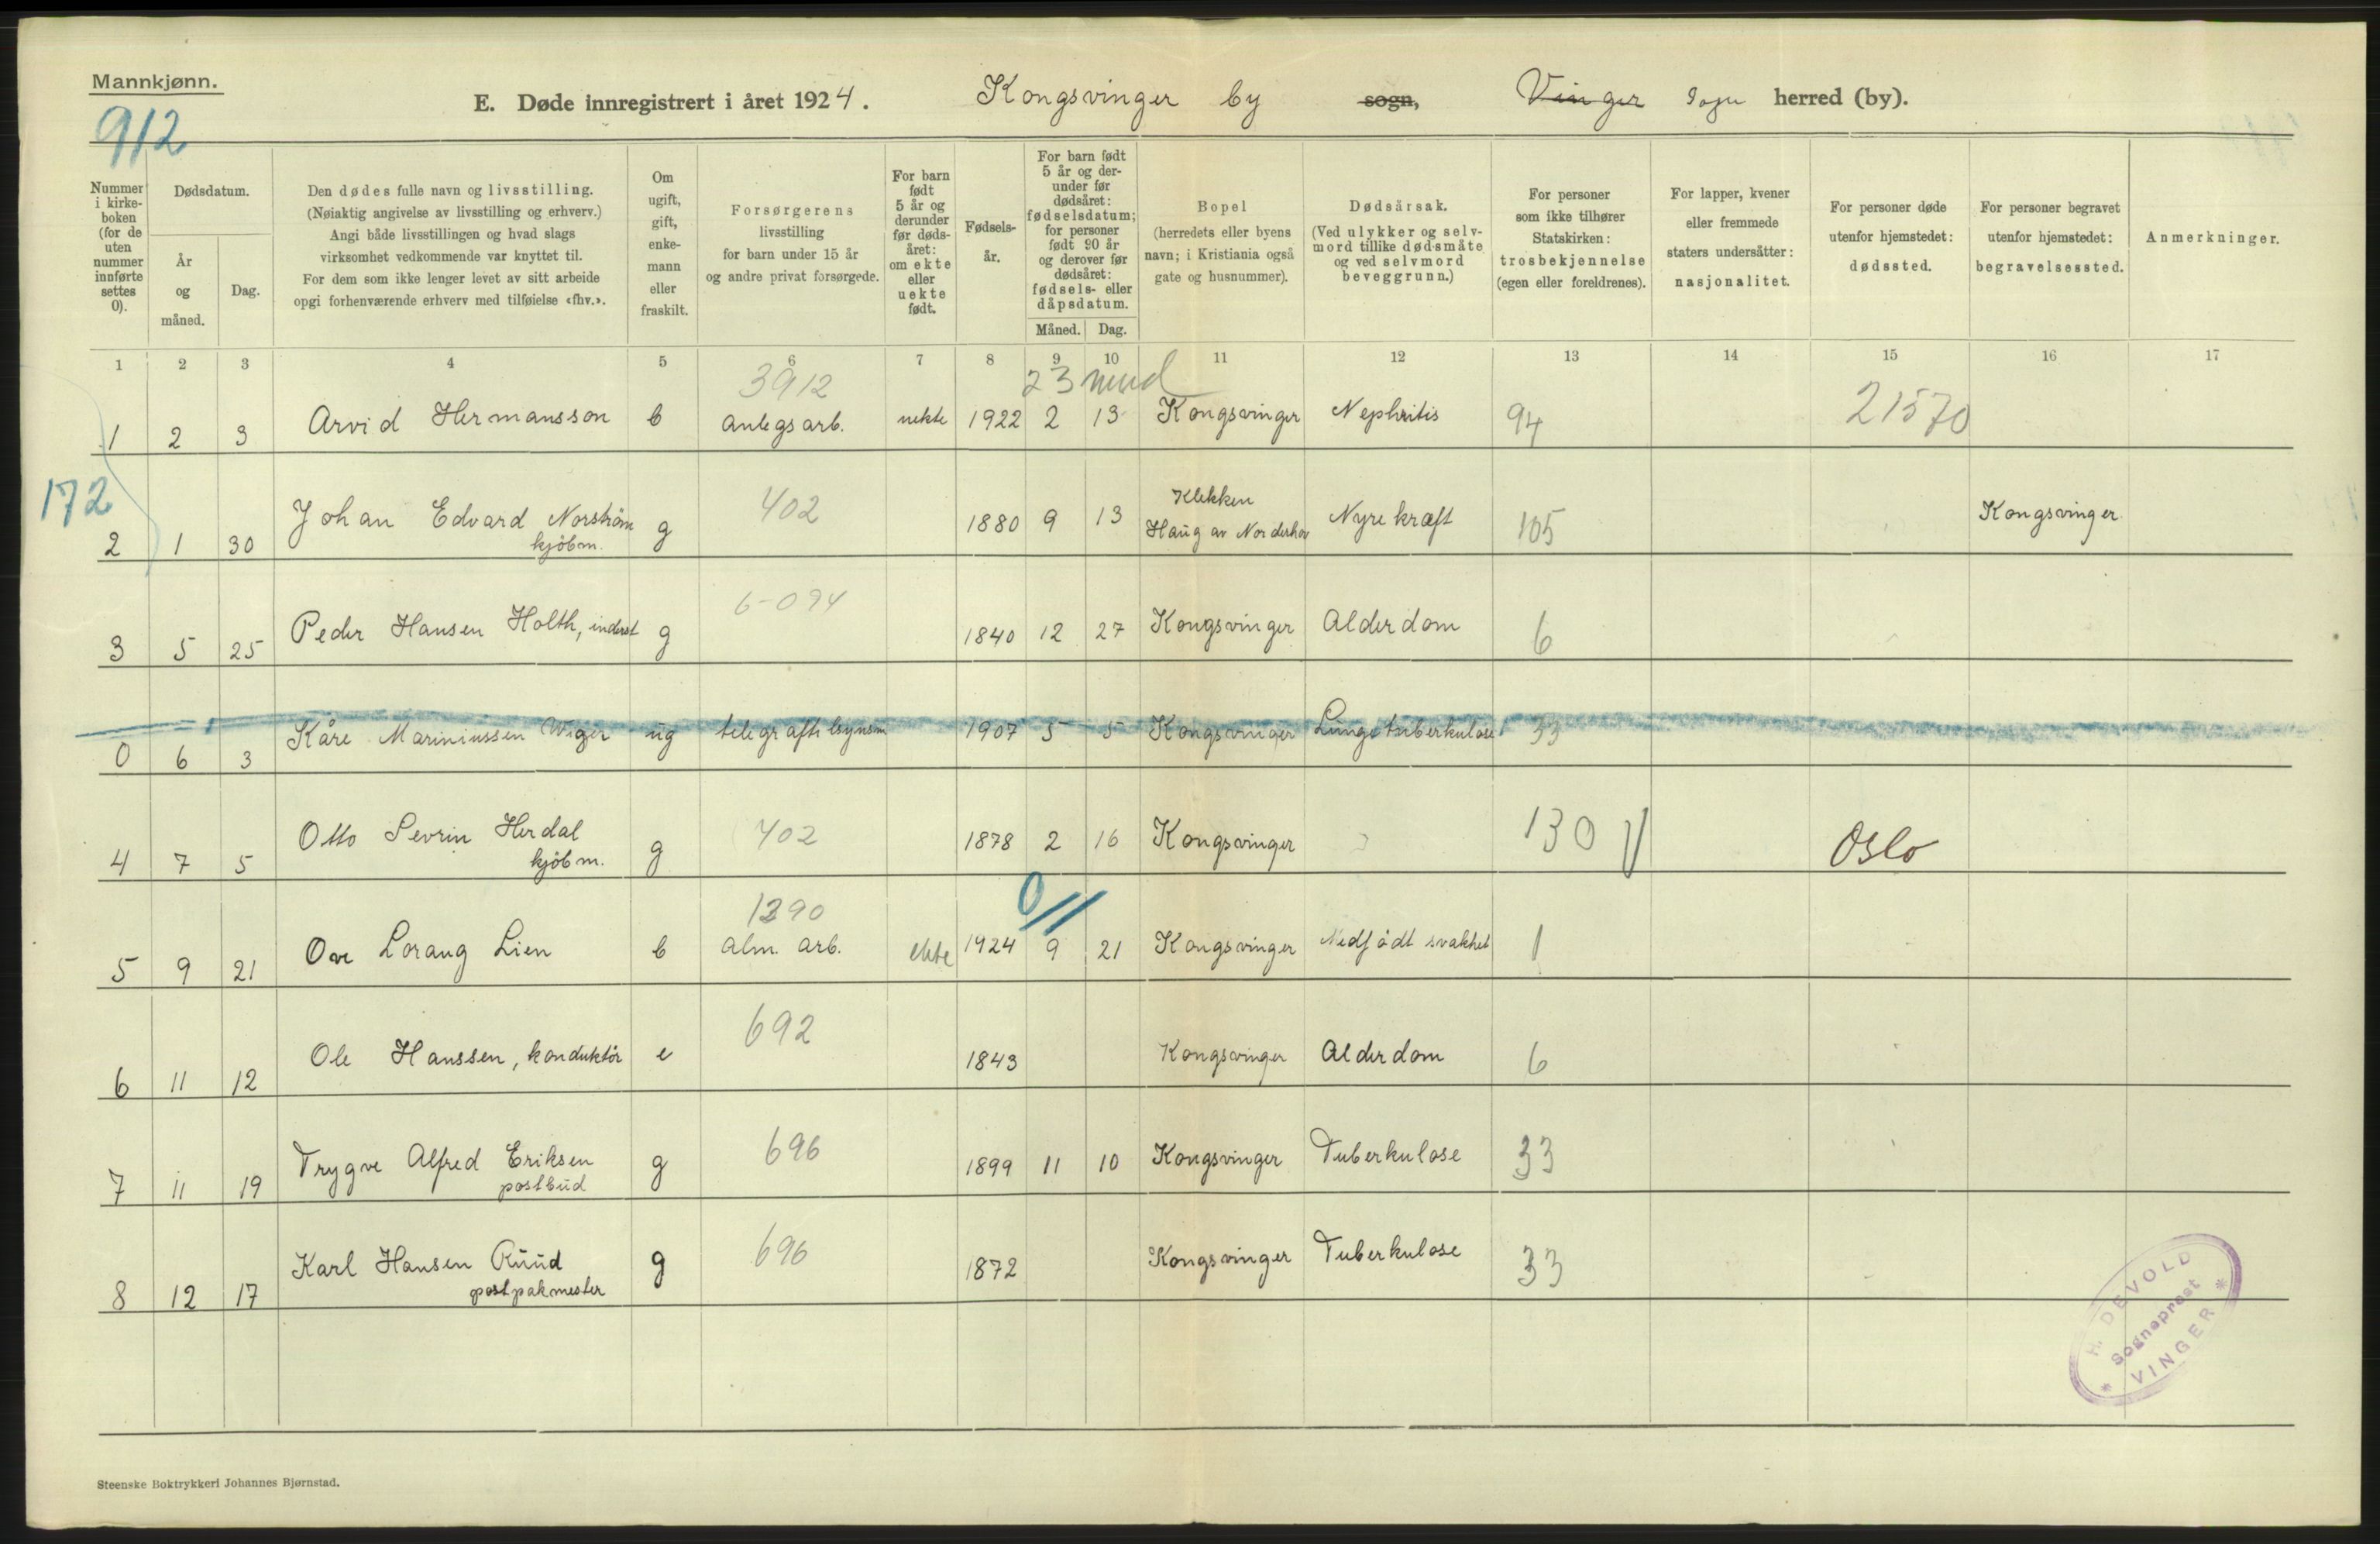 Mannkjønn.
912
E. Døde innregistrert i året 1924. Kongsvinger by sogn, Vinger sogn herred (by).
Nummer i kirke-boken (for de uten nummer innførte settes 0).
Dødsdatum.
År og måned.
Dag.
Den dødes fulle navn og livsstilling.
(Nøiaktig angivelse av livsstilling og erhverv.)
Angi både livsstillingen og hvad slags
virksomhet vedkommende var knyttet til.
For dem som ikke lenger levet av sitt arbeide
opgi forhenværende erhverv med tilføielse «fhv.».
Om ugift, gift, enke-mann eller fraskilt.
Forsørgerens
livsstilling
for barn under 15 år
og andre privat forsørgede.
For barn født 5 år og derunder før døds-året: om ekte eller uekte født.
Fødsels-år.
For barn født 5 år og der-under før dødsåret: fødselsdatum; for personer født 90 år og derover før dødsåret: fødsels- eller dåpsdatum.
Måned. Dag.
Bopel
(herredets eller byens
navn; i Kristiania også
gate og husnummer).
Dødsårsak.
(Ved ulykker og selv-
mord tillike dødsmåte
og ved selvmord
beveggrunn.)
For personer
som ikke tilhører
Statskirken:
trosbekjennelse
(egen eller foreldrenes).
For lapper, kvener
eller fremmede
staters undersåtter:
nasjonalitet.
For personer døde
utenfor hjemstedet:
dødssted.
For personer begravet
utenfor hjemstedet:
begravelsessted.
Anmerkninger.
1 2 3 4 5 6 7 8 9 10 11 12 13 14 15 16 17
3912 23 mnd
1 2 3 Arvid Hermansson b anlegsarb. uekte 1922 2 13 Kongsvinger Nephritis 94 21570
172
2 1 30 Johan Edvard Norström kjöbm. g 402 1880 9 13 Klekken Haug av Norderhov Nyrekræft 105 Kongsvinger.
3 5 25 Peder Hansen Holth, inderst g 6-094 1840 12 27 Kongsvinger Alderdom 6
0 6 3 Kåre Mariniussen Wiger ug 1907 5 5 Kongsvinger Lungetuberkulose 33
4 7 5 Otto Sevrin Herdal kjöbm. g 402 1878 2 16 Kongsvinger 130 Oslo
0//
1290
5 9 21 Ove Lorang Lien b alm. arb. ekte 1924 9 21 Kongsvinger Medfødt svakhet 1
6 11 12 Ole Hanssen, konduktör e 692 1843 Kongsvinger Alderdom 6
7 11 19 Trygve Alfred Eriksen postbud g 696 1899 11 10 Kongsvinger Tuberkulose 33
8 12 17 Karl Hansen Ruud postpakmester g 696 1872 Kongsvinger Tuberkulose 33
H. DEVOLD
Sogneprest
* VINGER *
Steenske Boktrykkeri Johannes Bjørnstad.